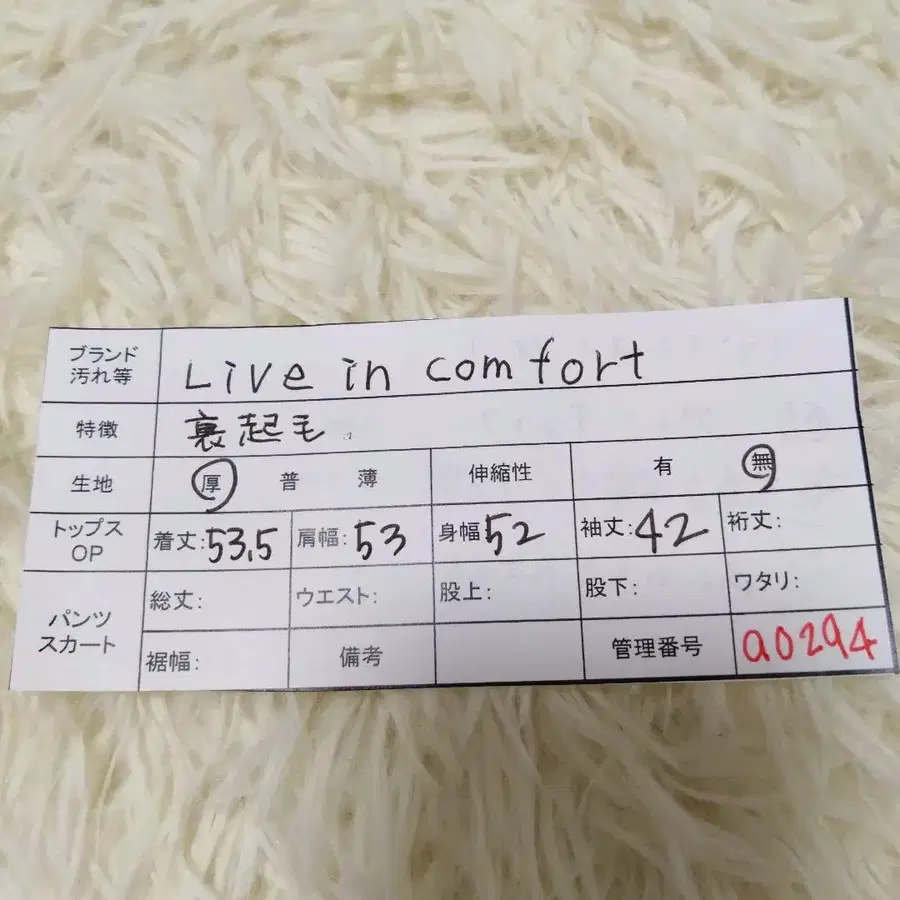 ブランド
汚れ等
Live in comfort
特徴
裏起毛
生地 厚 普 薄 伸縮性 有 無
トップス
OP
着丈:53.5 肩幅:53 身幅52 袖丈:42 裄丈:
パンツ
スカート
総丈: ウエスト: 股上: 股下: ワタリ:
裾幅: 備考 管理番号 a0294